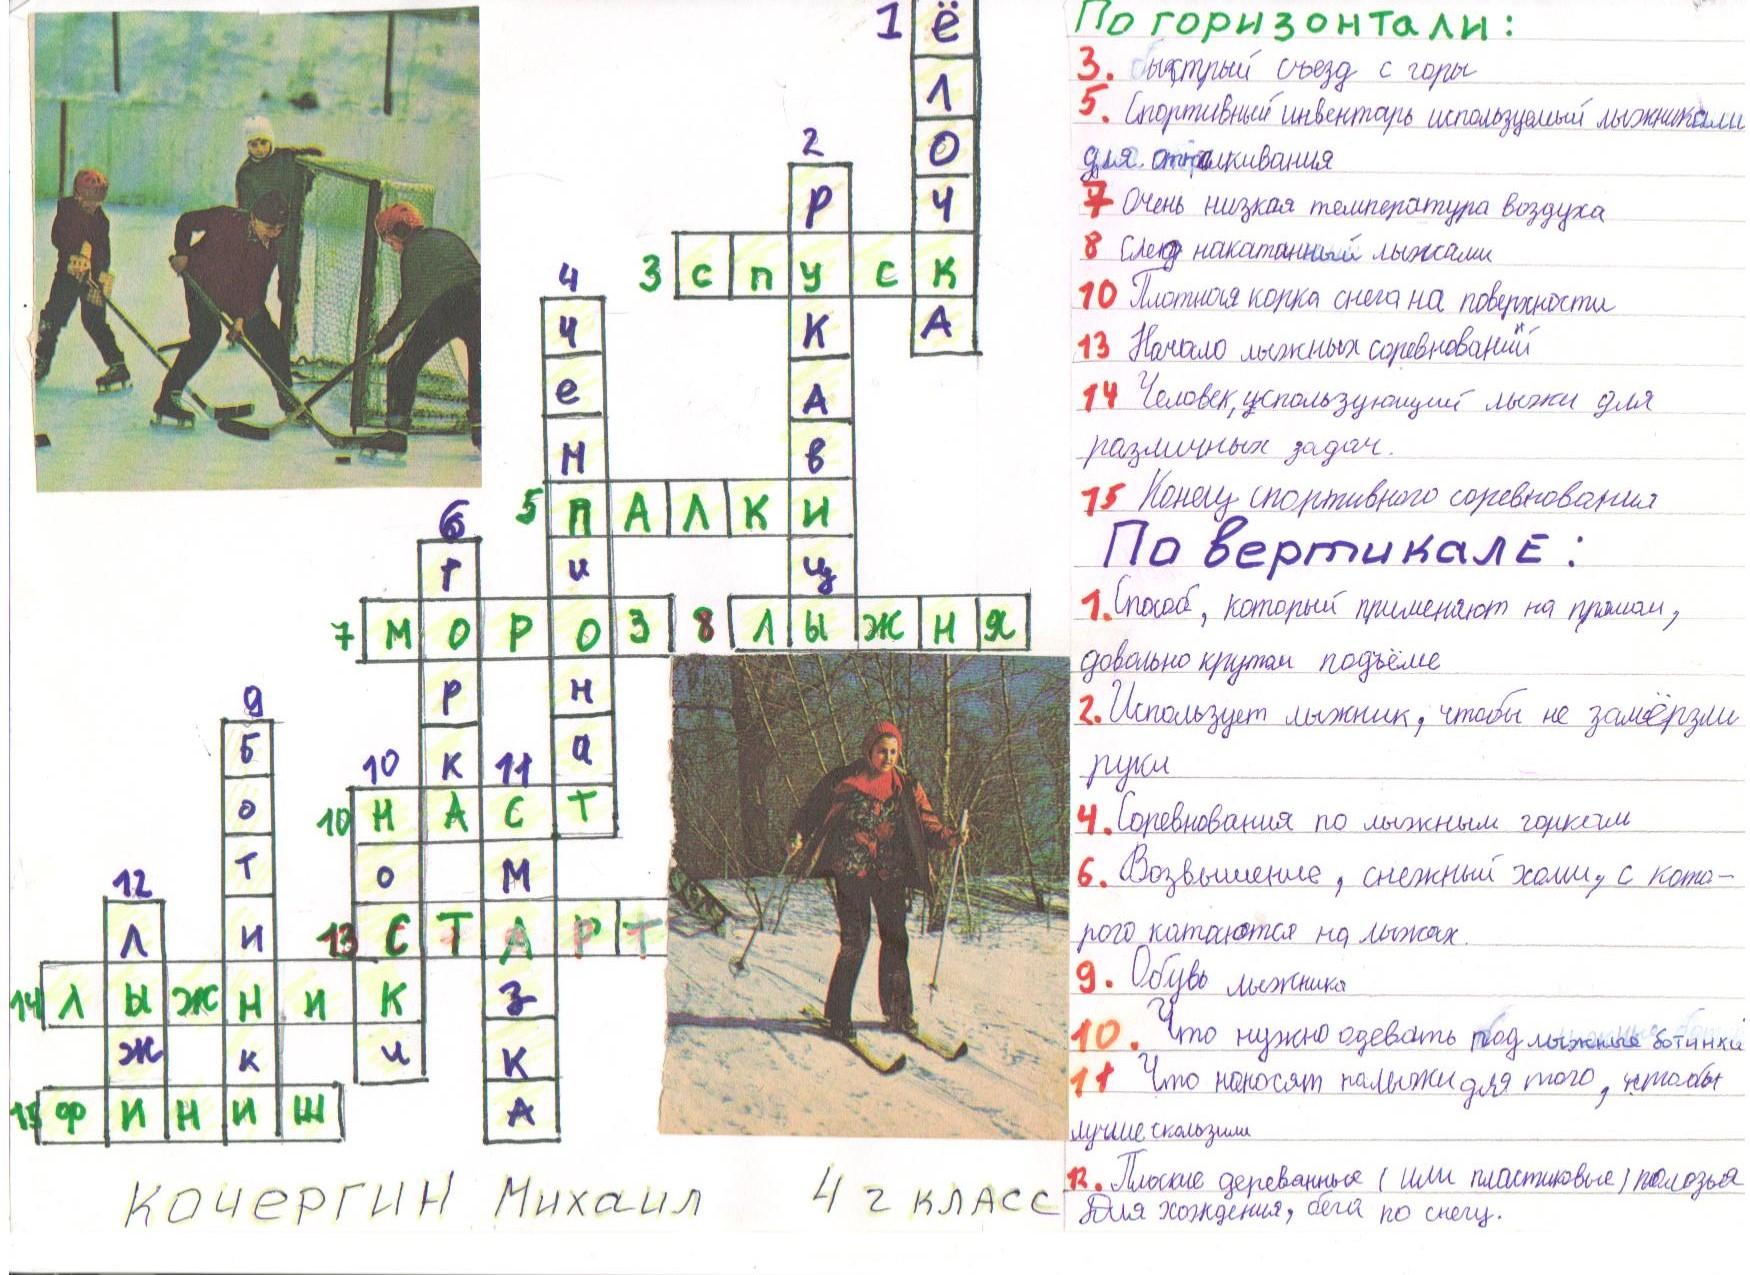 По горизонтали:
3. быстрый съезд с горы
5. Спортивный инвентарь используемый лыжниками
для отталкивания
7 Очень низкая температура воздуха
8 След накатанный лыжами
10 Плотная корка снега на поверхности
13 Начало лыжных соревнований
14 Человек, использующий лыжи для
различных задач.
15 Конец спортивного соревнования
По вертикалЕ:
1. Способ, который применяют на прямом,
довольно крутом подъёме
2. Использует лыжник, чтобы не замёрзли
руки
4. Соревнования по лыжным гонкам
6. Возвышение, снежный холм, с кото-
рого катаются на лыжах.
9. Обувь лыжника
10. Что нужно одевать под лыжные ботинки
11 Что наносят на лыжи для того, чтобы
лучше скользили
12. Плоские деревянные (или пластиковые) полозья
Для хождения, бега по снегу.
1 ЁЛОЧКА
2 РУКАВИЦЫ
3 СПУСК
4 ЧЕМПИОНАТ
5 ПАЛКИ
6 ГОРКА
7 МОРОЗ
8 ЛЫЖНЯ
9 БОТИНКИ
10 НАСТ
10 НОСКИ
11 СМАЗКА
12 ЛЫЖИ
13 СТАРТ
14 ЛЫЖНИК
15 ФИНИШ
Кочергин Михаил 4 г класс